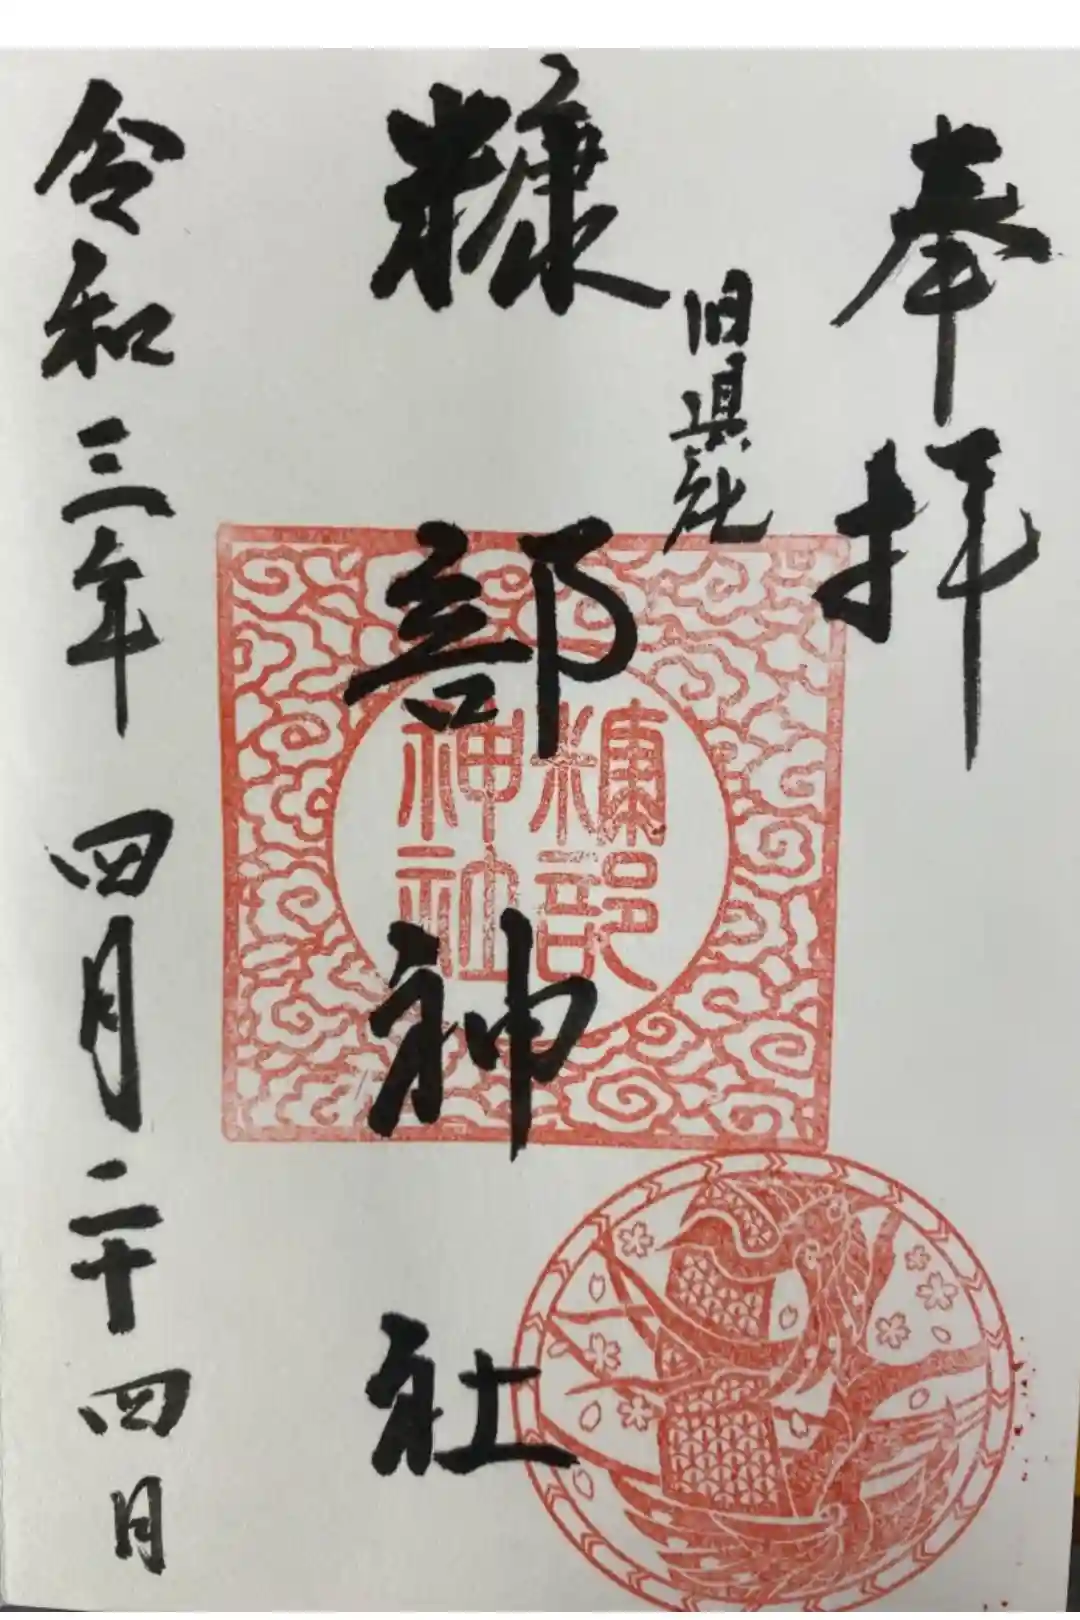 奉拝
旧県社
糠部神社
令和三年 四月二十四日
糠部
神社